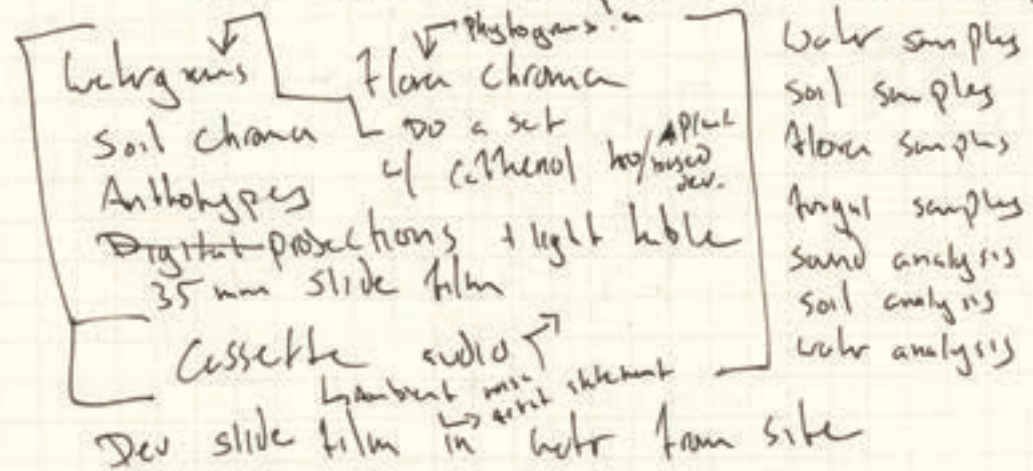 phytograms!
Watrgrams
Flora Chroma
Soil Chroma
DO a set
w/ caffenol
plant
based
dev.
Anthotypes
Digital projections + light table
35mm slide film
Cassette audio
↳ambient
↳ artist statement
Dev slide film in watr from site
Watr samples
Soil samples
flora samples
fungal samples
sound analysis
soil analysis
watr analysis